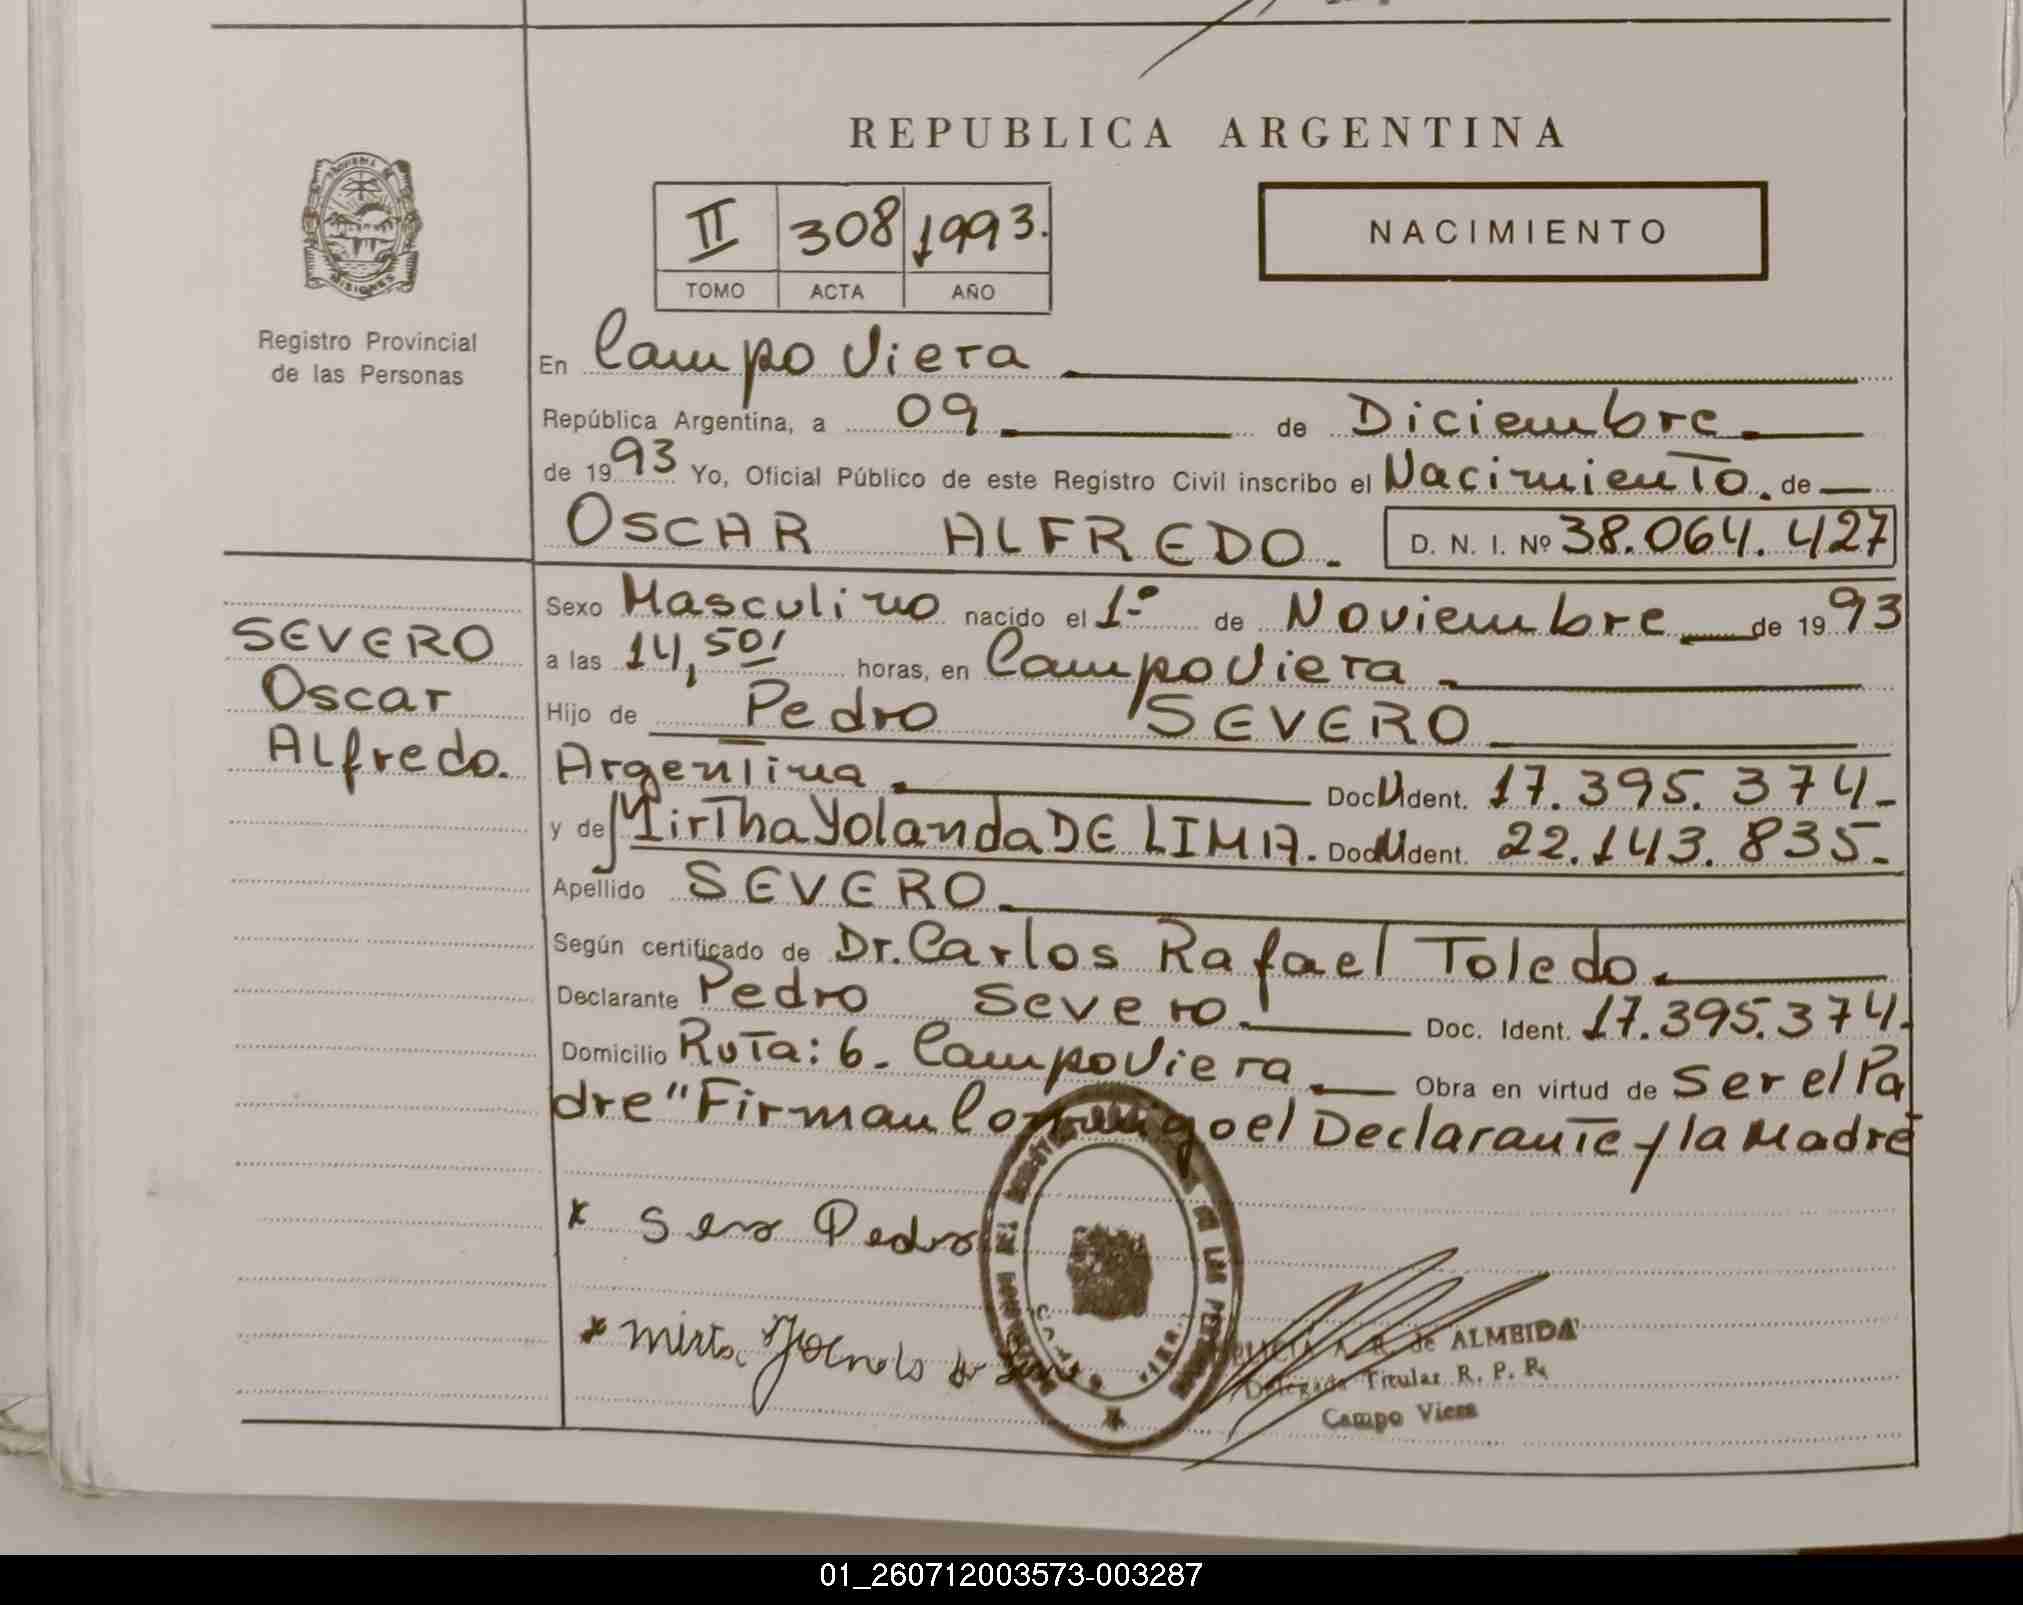 REPUBLICA ARGENTINA
II 308 1993.
TOMO ACTA AÑO
NACIMIENTO
MISIONES
Registro Provincial
de las Personas
En Campo Viera
República Argentina, a 09 de Diciembre
de 1993 Yo, Oficial Público de este Registro Civil inscribo el Nacimiento. de
OSCAR ALFREDO. D. N. I. Nº 38.064.427
SEVERO
Oscar
Alfredo.
Sexo Masculino nacido el 1º de Noviembre de 1993
a las 14,50' horas, en Campo Viera
Hijo de Pedro SEVERO
Argentina Doc. Ident. 17.395.374-
y de Mirtha Yolanda DE LIMA. Doc. Ident. 22.143.835-
Apellido SEVERO
Según certificado de Dr. Carlos Rafael Toledo
Declarante Pedro Severo. Doc. Ident. 17.395.374-
Domicilio Ruta: 6- Campo Viera Obra en virtud de Ser el Pa
dre" Firman Conmigo el Declarante y la Madre
x Pedro
x Mirta
A. R. de ALMEIDA
Delegada Titular R. P. P.
Campo Viera
01_260712003573-003287